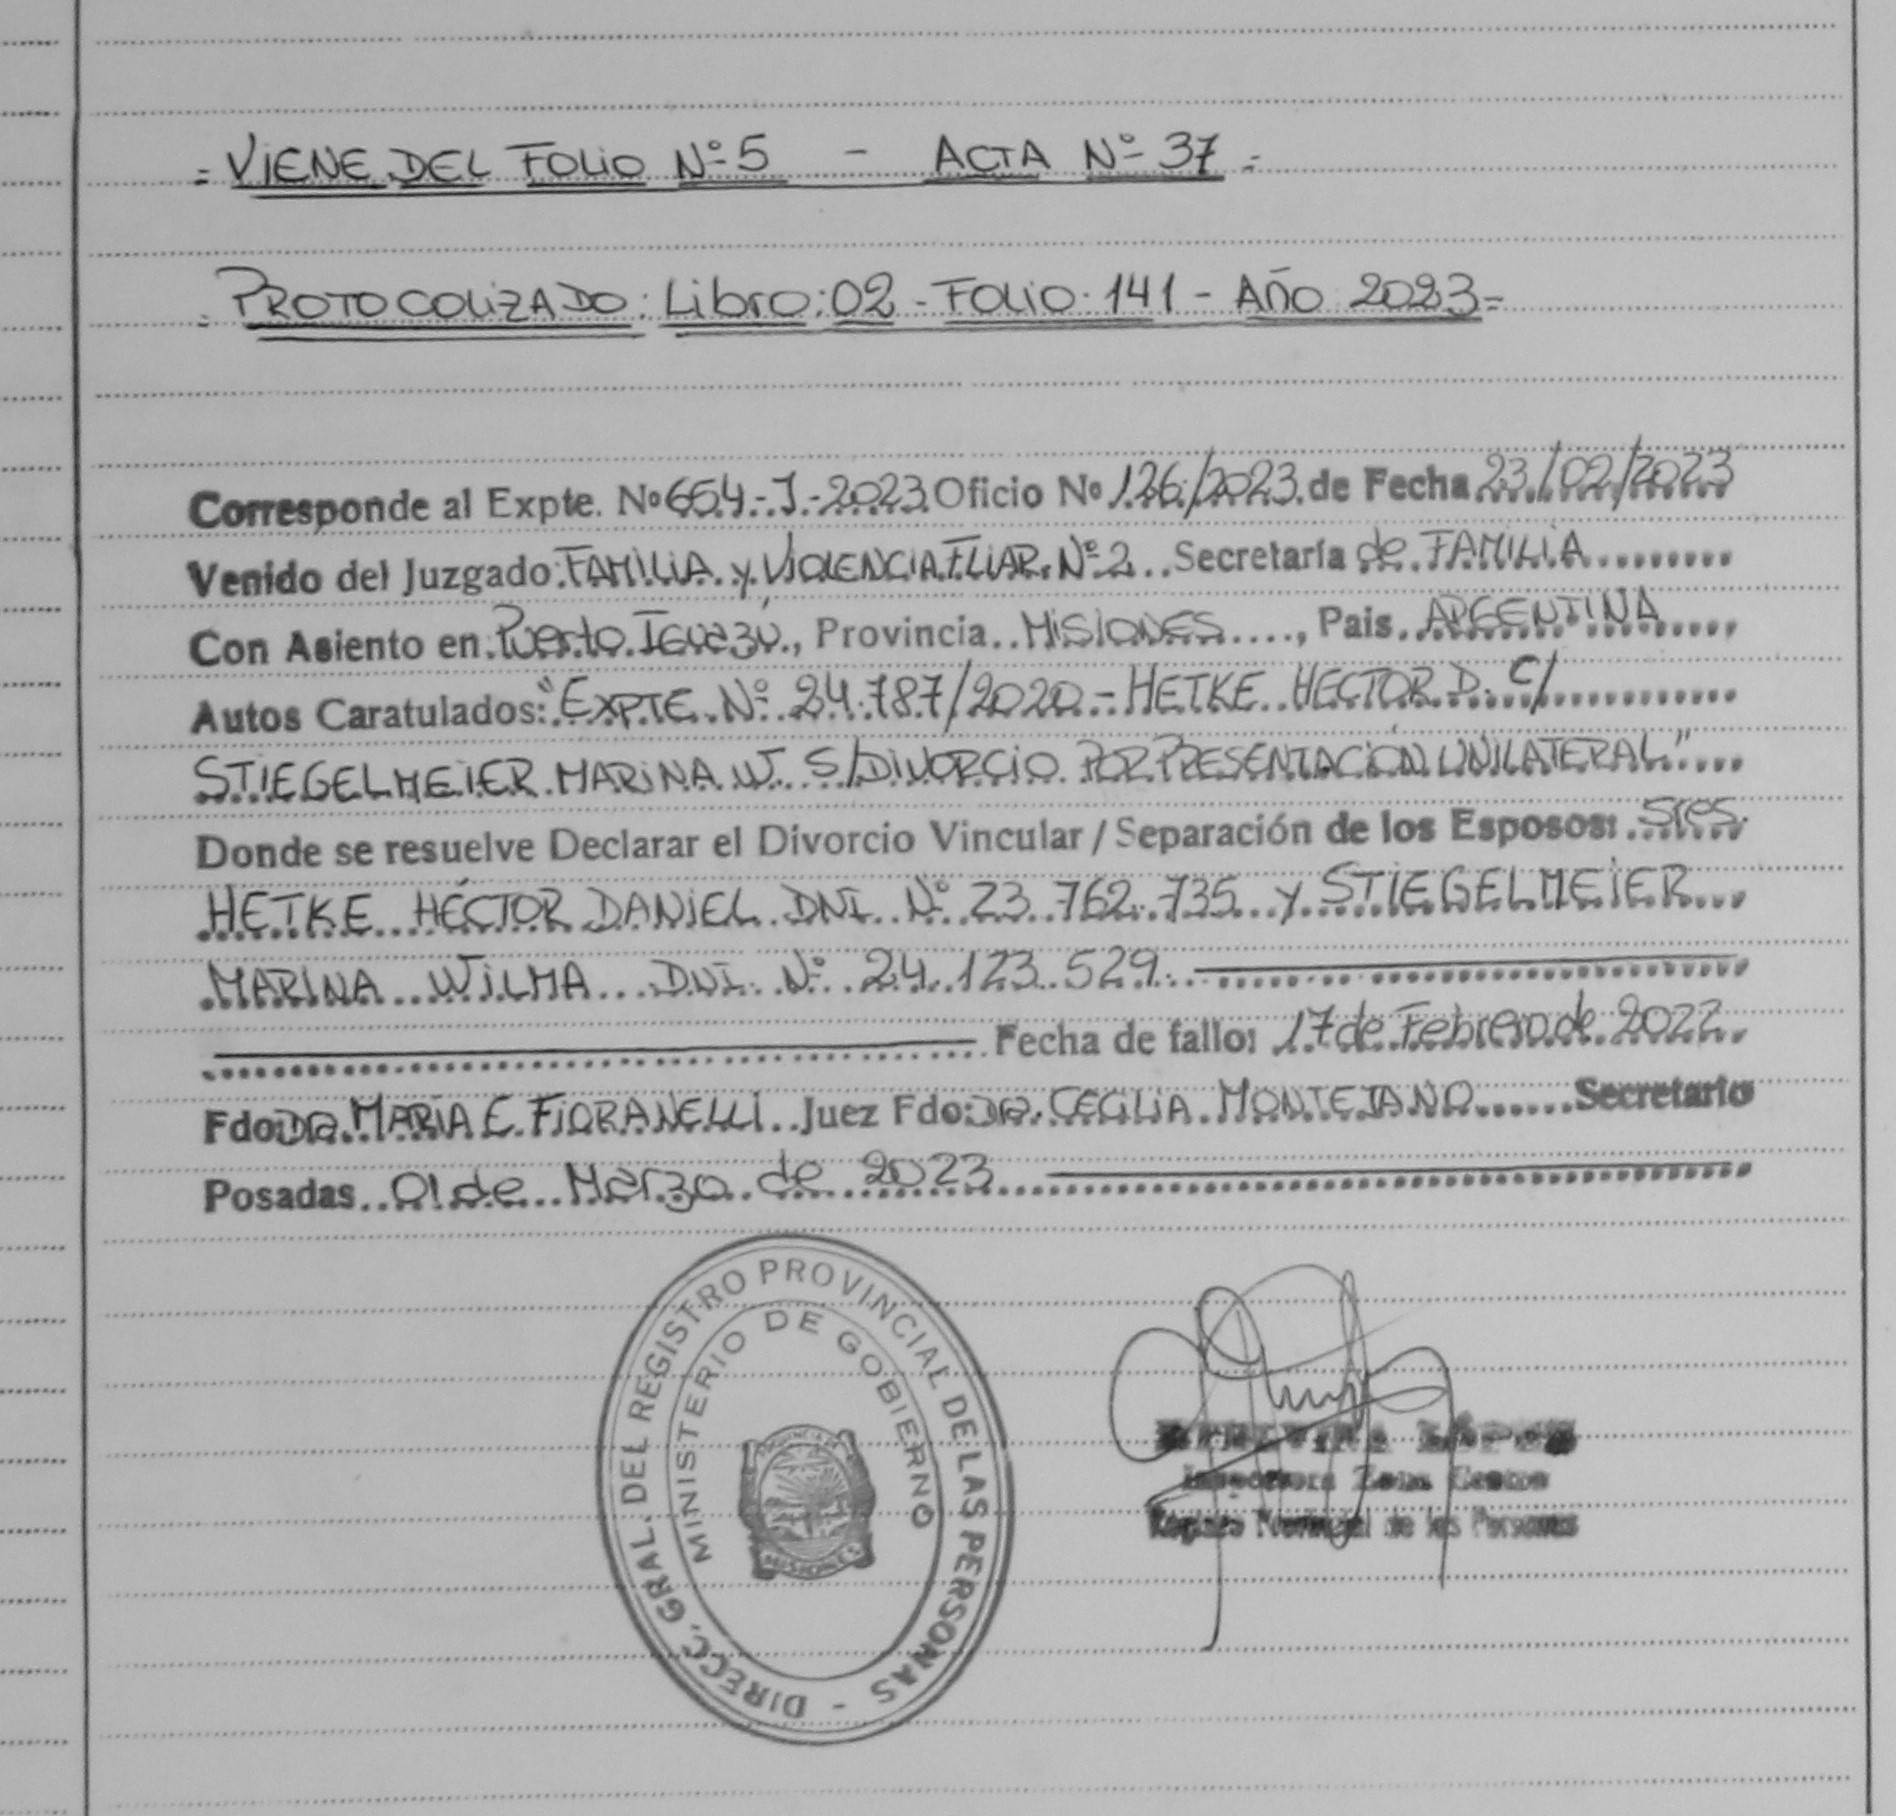 = VIENE DEL FOLIO Nº 5 - ACTA Nº 37 =
PROTOCOLIZADO: Libro: 02 - FOLIO 141 - AÑO 2023=
Corresponde al Expte. Nº 654-J-2023 Oficio Nº 126/2023 de Fecha 23/02/2023
Venido del Juzgado FAMILIA y VIOLENCIA FLIAR. Nº 2 Secretaría de FAMILIA
Con Asiento en Puerto Iguazu, Provincia MISIONES, Pais ARGENTINA
Autos Caratulados: "EXPTE Nº 24.787/2020 - HETKE HECTOR D. C/
STIEGELMEIER MARINA W. S/DIVORCIO POR PRESENTACION UNILATERAL"
Donde se resuelve Declarar el Divorcio Vincular / Separación de los Esposos: Sres.
HETKE HÉCTOR DANIEL DNI Nº 23.762.735 y STIEGELMEIER
MARINA WILMA DNI Nº 24.123.529
Fecha de fallo: 17 de Febrero de 2022
Fdo: Dra. MARIA E. FIORANELLI Juez Fdo: Dra. CECILIA MONTEJANO Secretario
Posadas 01 de Marzo de 2023
DIRECC. GRAL. DEL REGISTRO PROVINCIAL DE LAS PERSONAS -
MINISTERIO DE GOBIERNO
PROVINCIA DE
MISIONES
Inspectora Zona Centro
Registro Provincial de las Personas